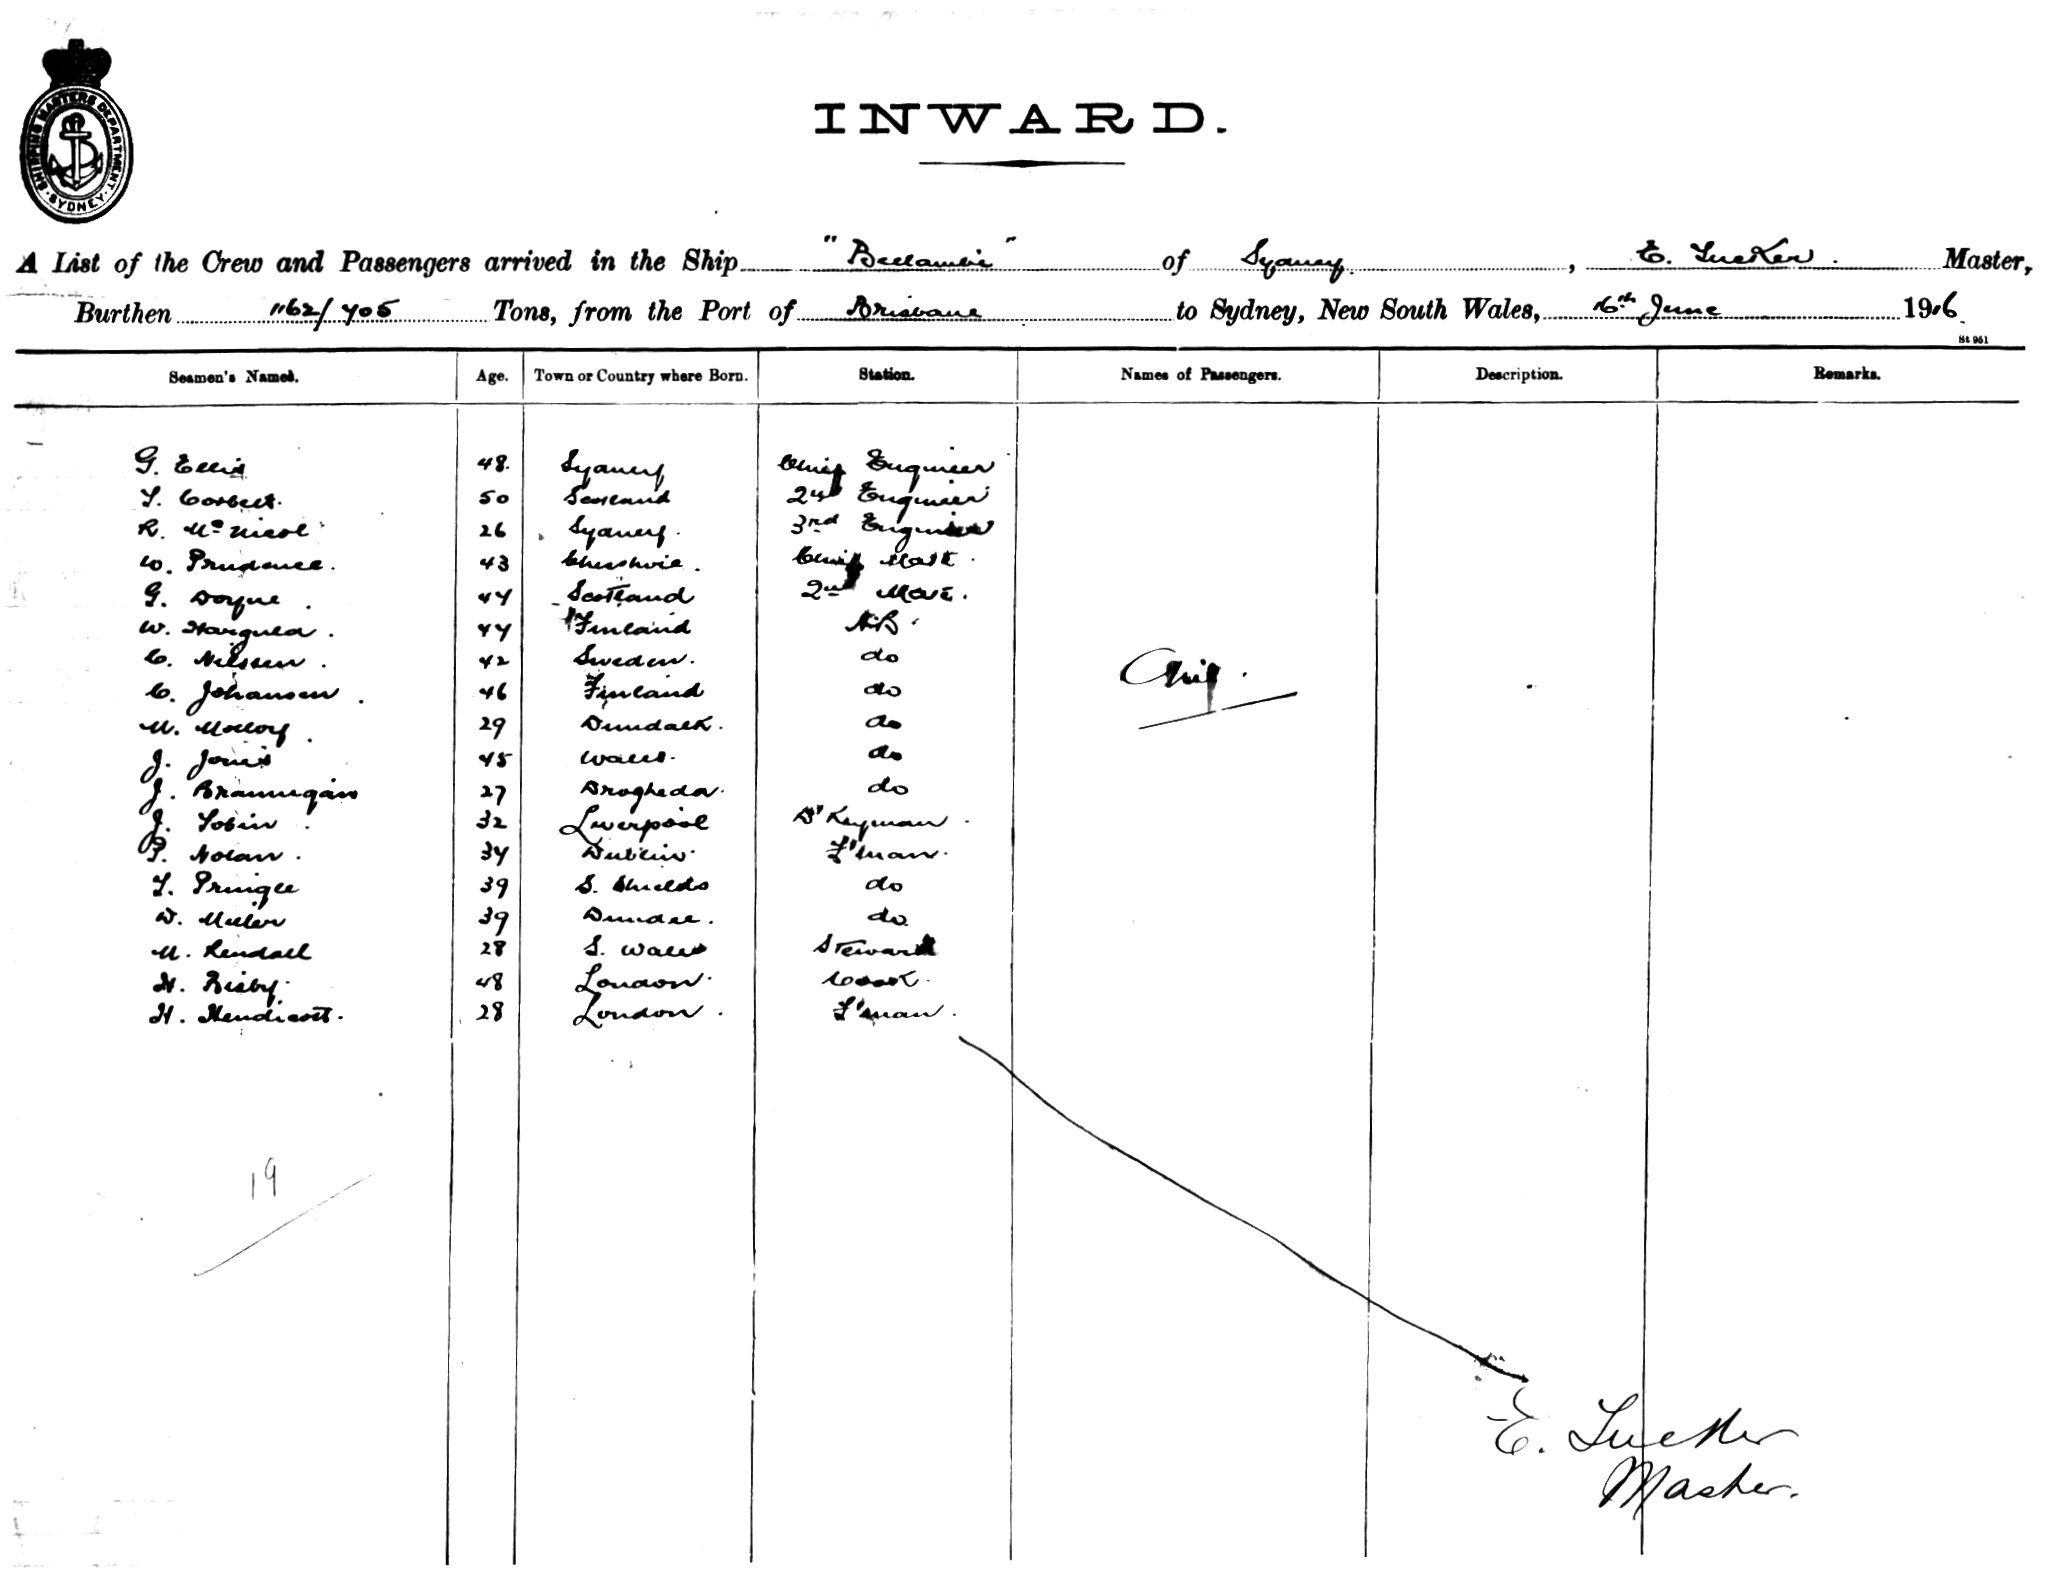 SHIPPING MASTERS DEPARTMENT · SYDNEY ·
INWARD.
A List of the Crew and Passengers arrived in the Ship "Bellambi" of Sydney, E. Tucker. Master,
Burthen 1162/705 Tons, from the Port of Brisbane to Sydney, New South Wales, 16th June 1916
St 951
Seamen's Names. Age. Town or Country where Born. Station. Names of Passengers. Description. Remarks.
G. Ellis 48. Sydney Chief Engineer
T. Corbett. 50 Scotland 2nd Engineer
R. McNicol 26 Sydney. 3rd Engineer
W. Prudence. 43 Cheshire. Chief Mate.
G. Doyne. 44 Scotland 2nd Mate.
W. 44 Finland A.B.
C. Nilssen. 42 Sweden. do
C. Johansen. 46 Finland do
M. Molloy. 29 Dundalk. do
J. Jones 45 Wales. do
J. Brannigan 27 Drogheda. do
J. Tobin. 32 Liverpool D'Keyman.
P. Nolan. 34 Dublin. F'man.
T. Pringle 39 S. Shields do
D. Miller 39 Dundee. do
M. Kendall 28 S. Wales Steward
H. Bisby. 48 London. Cook.
H. Hendicott. 28 London. F'man.
19
E. Tucker
Master.